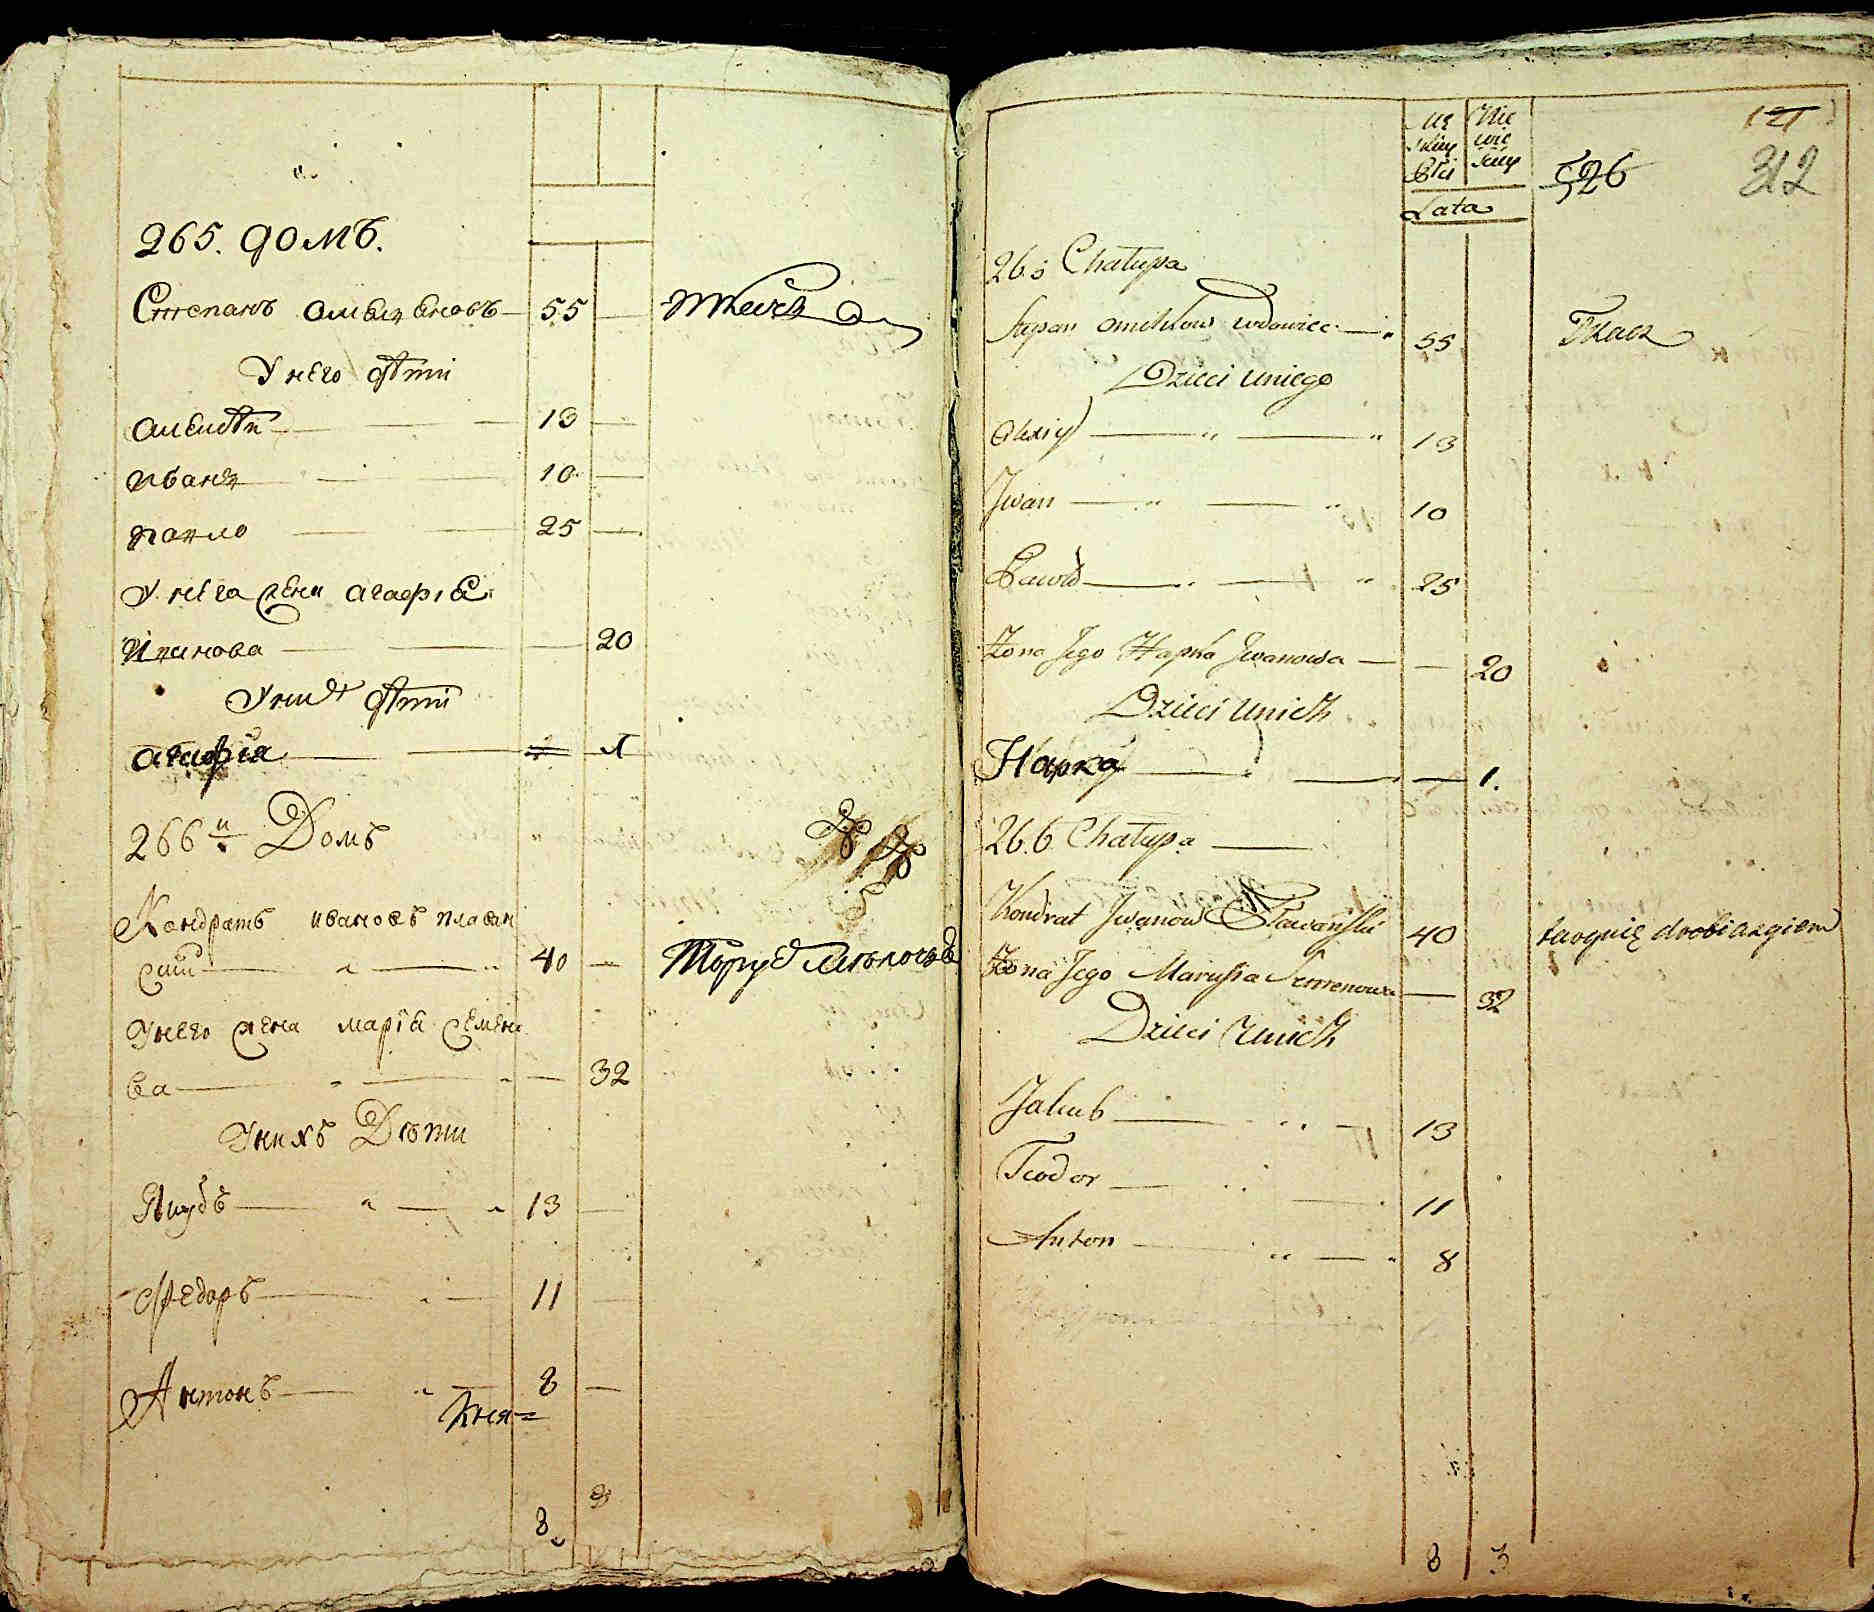 265. домъ.
Степанъ омеляновъ 55
У него дѣти
алексѣи 13
иванъ 10
павло 25
У него жена агафıа
иванова 20
У них дѣти
агафıя 1
266й Домъ
Кондратъ ивановъ плаван
скıй 40 Торуе
У него жена марıа семено
ва 32
У нихъ Дѣти
Якубъ 13
Федоръ 11
Антонъ 8
8 3
Mę skiey Płci
Nie wie sciey
Lata
526
121
312
265 Chałupa
Stepan Omelkow wdowiec 55 Tkacz
Dzieci u niego
Alexiy 13
Jwan 10
Pawło 25
Żona Jego Hapka Jwanowa 20
Dzieci u nich
Hapka 1.
266 Chałupa
Kondrat Jwanow Pławański 40 targuię drobiazgiem
Żona Jego Marysia Semenowa 32
Dzieci u nich
Jakub 13
Teodor 11
Anton 8
8 3